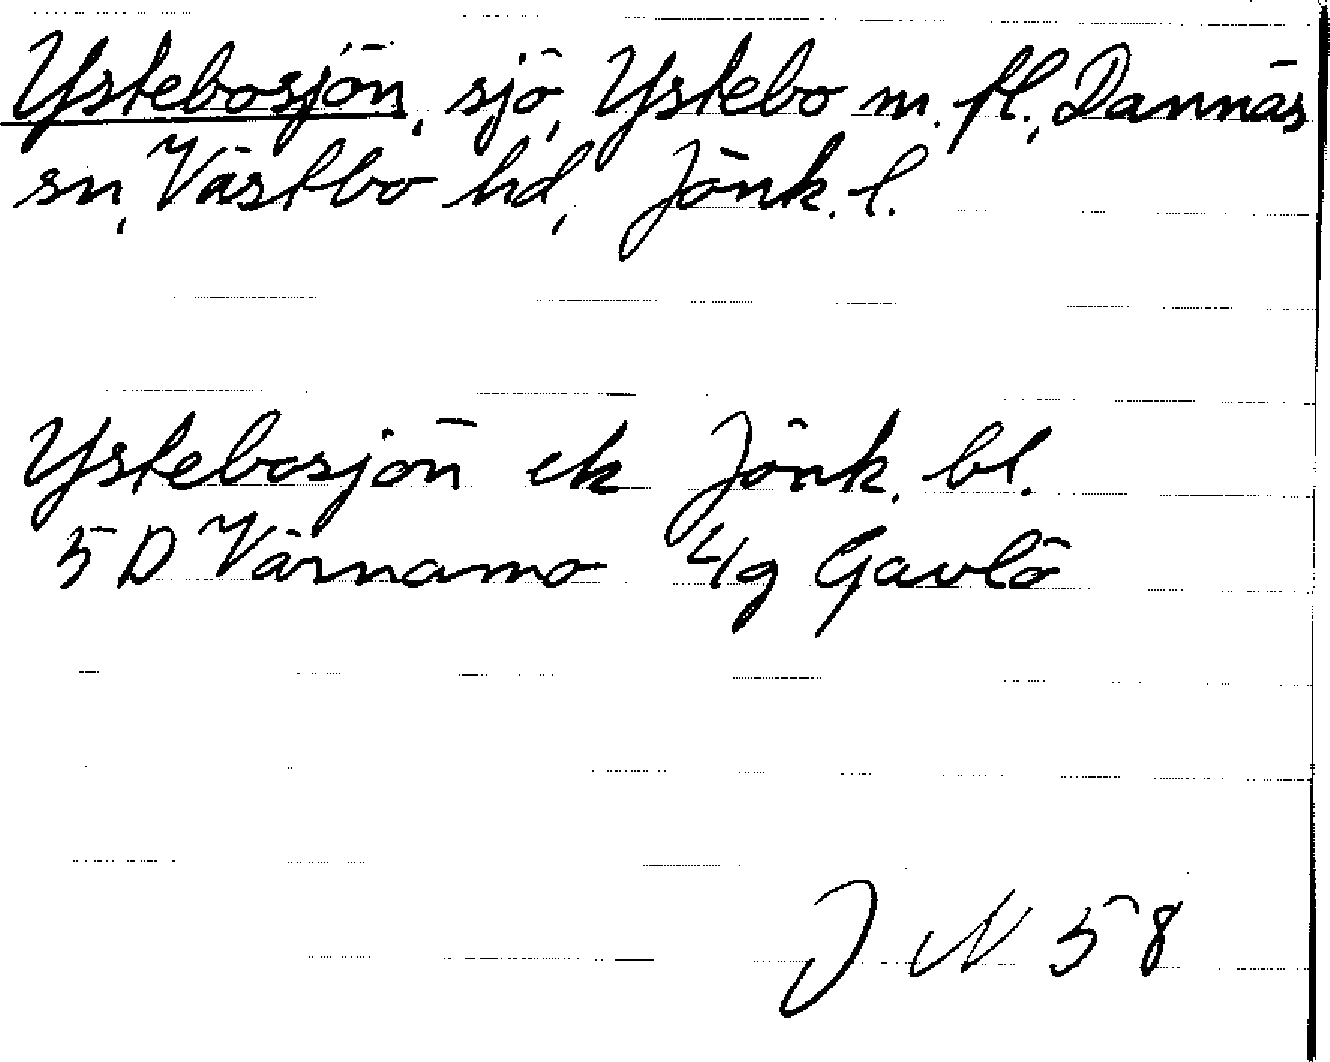 Ystebosjön, sjö, Ystebo m. fl., Dannäs
sn, Västbo hd, Jönk. l.
Ystebosjön ek Jönk. bl.
5 D Värnamo 4/g Gavlö
J N 58